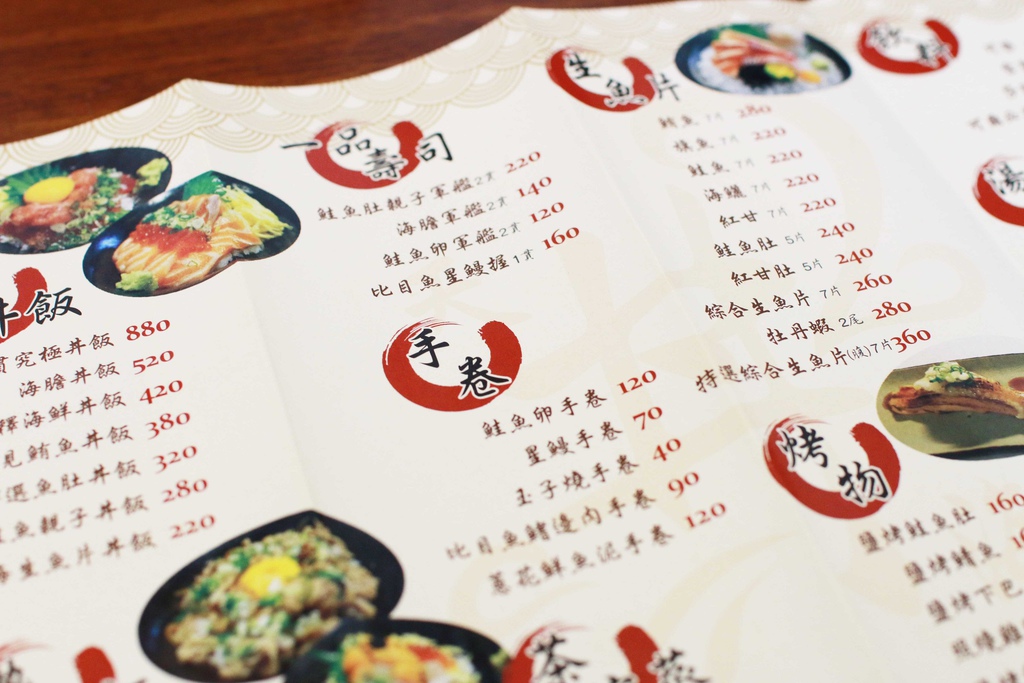 丼飯
究極丼飯 880
海膽丼飯 520
海鮮丼飯 420
鮪魚丼飯 380
選魚肚丼飯 320
魚親子丼飯 280
生魚片丼飯 220
一品壽司
鮭魚肚親子軍艦2貫 220
海膽軍艦2貫 140
鮭魚卵軍艦2貫 120
比目魚星鰻握1貫 160
手卷
鮭魚卵手卷 120
星鰻手卷 70
玉子燒手卷 40
比目魚鰭邊肉手卷 90
蔥花鮮魚泥手卷 120
生魚片
鮪魚 7片 280
旗魚 7片 220
鮭魚 7片 220
海鱺 7片 220
紅甘 7片 220
鮭魚肚 5片 240
紅甘肚 5片 240
綜合生魚片 7片 260
牡丹蝦 2尾 280
特選綜合生魚片(腩)7片 360
烤物
鹽烤鮭魚肚 160
鹽烤鯖魚
鹽烤下巴
照燒雞
湯
茶
蒸